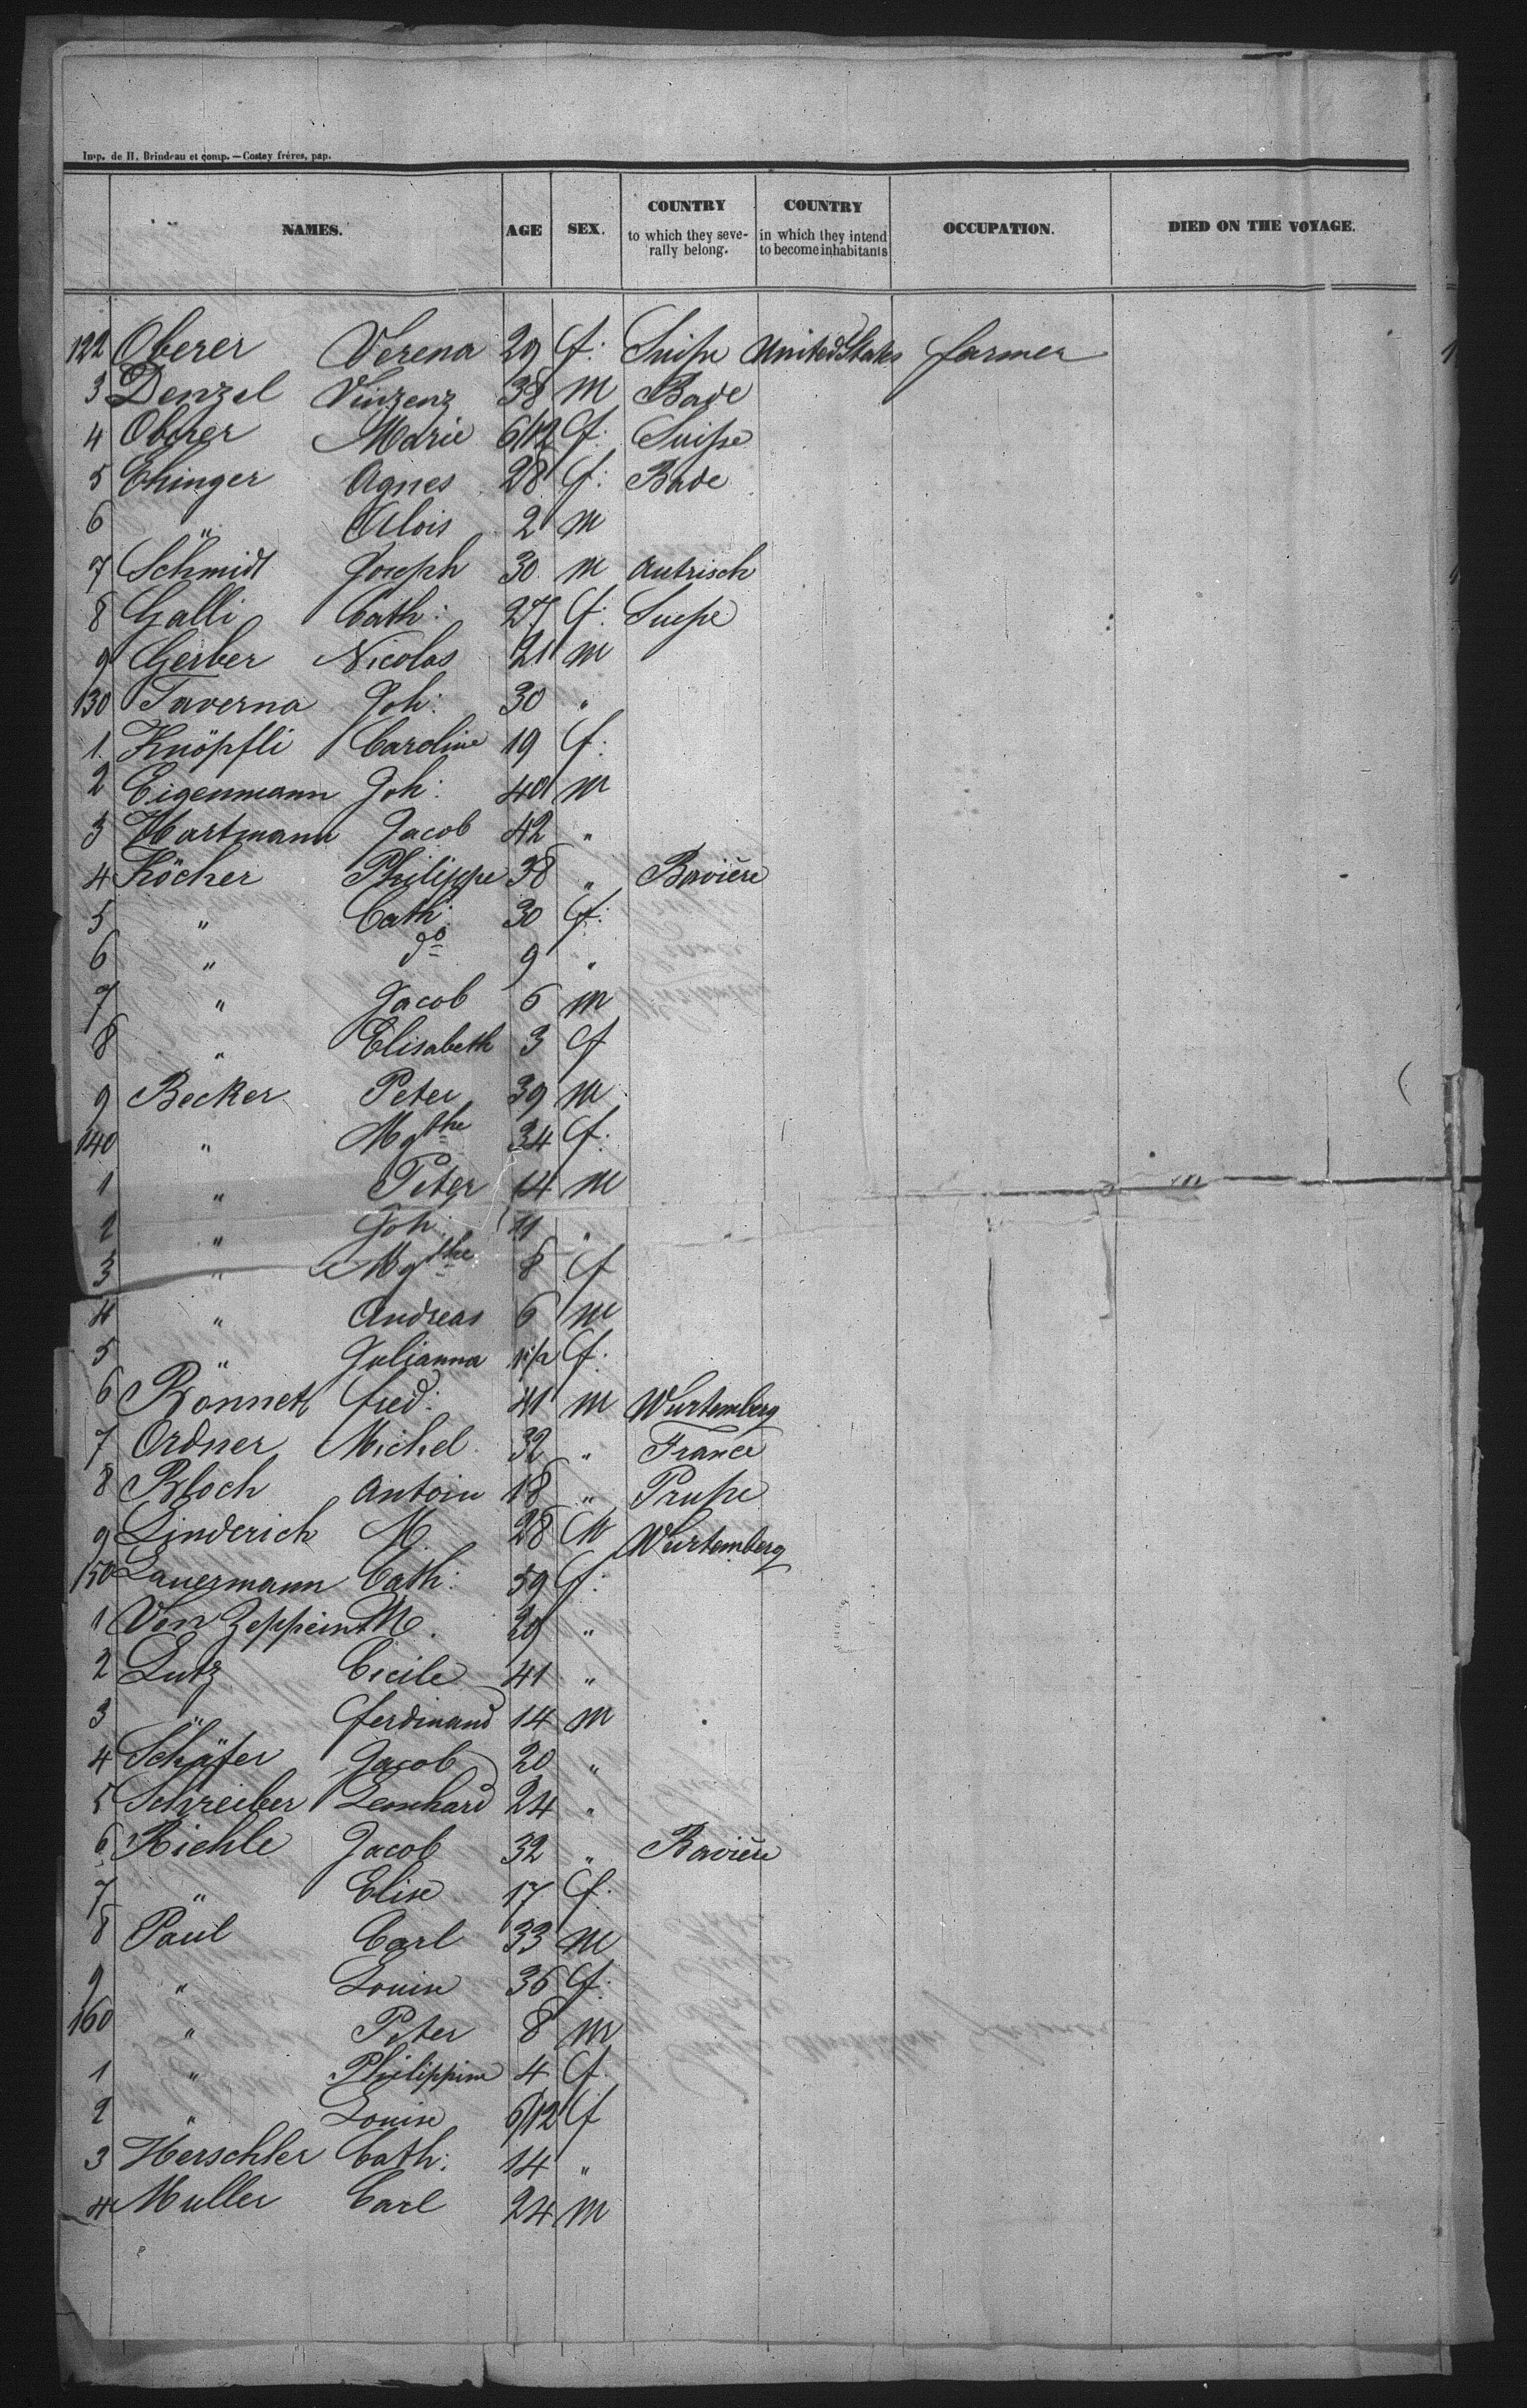 Imp. de H. Brindeau et comp. — Costey frères, pap.
NAMES. AGE SEX. COUNTRY to which they severally belong. COUNTRY in which they intend to become inhabitants OCCUPATION. DIED ON THE VOYAGE.
122 Oberer Verena 29 f: Suisse United States farmer
3 Denzel Vinzenz 38 m Bade
4 Oberer Marie 6/12 f: Suisse
5 Ehinger Agnes 28 f: Bade
6 " Alois 2 m
7 Schmidt Joseph 30 m Autrisch
8 Galli Cath: 27 f: Suisse
9 Gerber Nicolas 21 m
130 Taverna Joh: 30 "
1 Knöpfli Caroline 19 f:
2 Eigenmann Joh: 40 m
3 Hartmann Jacob 42 "
4 Köcher Philippe 38 " Bavière
5 " Cath: 30 f:
6 " do 9 "
7 " Jacob 6 m
8 " Elisabeth 3 f
9 Becker Peter 39 m
140 " Mgthe 34 f:
1 " Peter 14 m
2 " Joh: 11 "
3 " Mgthe 8 f
4 " Andreas 6 m
5 " Julianna 1 1/2 f:
6 Bonneth fred: 41 m Wurtemberg
7 Ordner Michel 32 " France
8 Bloch Antoin 18 " Prusse
9 Linderich M. 28 M Wurtemberg
150 Lauermann Cath: 59 f:
1 Von M. "
2 Lutz Cicile 41 "
3 " ferdinand 14 m
4 Schäfer Jacob 20 "
5 Schreiber Leonhard 24 "
6 Riehle Jacob 32 " Bavière
7 " Elise 17 f:
8 Paul Carl 33 m
9 " Louise 36 f:
160 " Peter 8 m
1 " Philippine 4 f.
2 " Louise 6/12 f
3 Herschler Cath: 14 "
4 Muller Carl 24 m